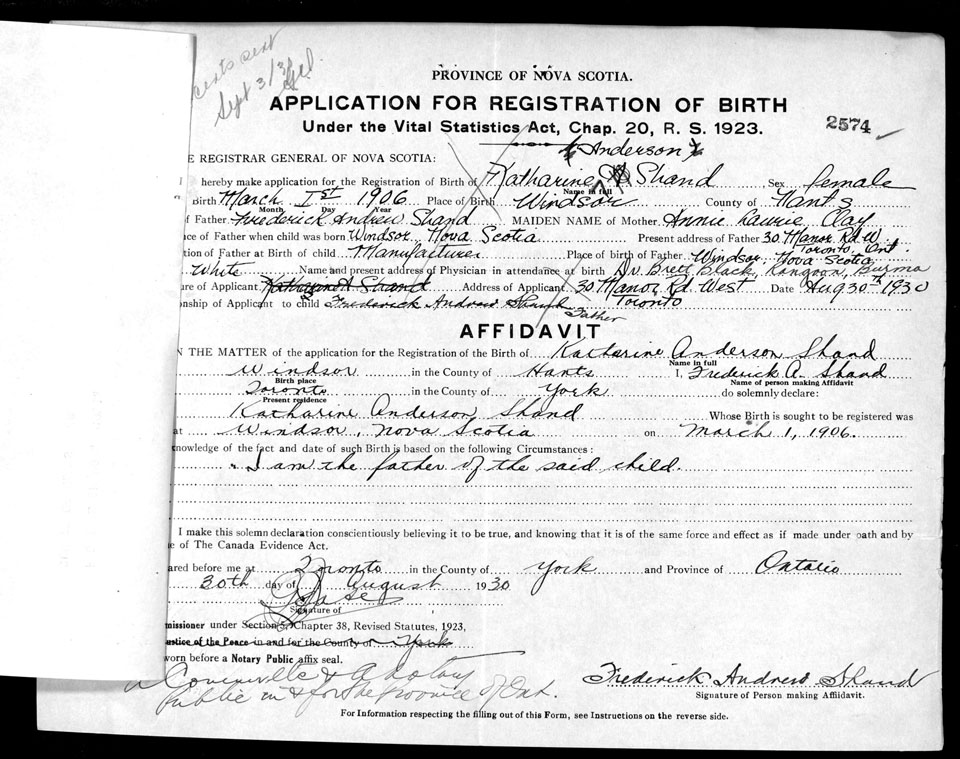 cents sent
Sept 3/3
PROVINCE OF NOVA SCOTIA.
APPLICATION FOR REGISTRATION OF BIRTH
Under the Vital Statistics Act, Chap. 20, R. S. 1923.
2574
Anderson
E REGISTRAR GENERAL OF NOVA SCOTIA:
I hereby make application for the Registration of Birth of Katharine A Shand Sex female
Name in full
Birth March 1st 1906 Place of Birth Windsor County of Hants
Month Day Year
of Father Frederick Andrew Shand MAIDEN NAME of Mother Annie Laurie Clay
ce of Father when child was born Windsor Nova Scotia Present address of Father 30 Manor Rd W
Toronto, Ont.
tion of Father at Birth of child Manufacturer Place of birth of Father Windsor, Nova Scotia
White Name and present address of Physician in attendance at birth Dr. Brett Black, Rangoon, Burma
ure of Applicant Katharine A Shand Address of Applicant 30 Manor Rd. West Date Aug 30th 1930
nship of Applicant to child Frederick Andrew Shand Toronto
Father
AFFIDAVIT
N THE MATTER of the application for the Registration of the Birth of Katharine Anderson Shand
Name in full
Windsor in the County of Hants I, Frederick A. Shand
Birth place Name of person making Affidavit
Toronto in the County of York do solemnly declare:
Present residence
Katharine Anderson Shand Whose Birth is sought to be registered was
at Windsor, Nova Scotia on March 1, 1906.
knowledge of the fact and date of such Birth is based on the following Circumstances:
I am the father of the said child.
I make this solemn declaration conscientiously believing it to be true, and knowing that it is of the same force and effect as if made under oath and by
e of The Canada Evidence Act.
ared before me at Toronto in the County of York and Province of Ontario
30th day of August 1930
Signature of
missioner under Section 5, Chapter 38, Revised Statutes, 1923,
ustice of the Peace in and for the County of York
worn before a Notary Public affix seal.
a Notary
Public in & for the province of Ont.
Frederick Andrew Shand
Signature of Person making Affidavit.
For Information respecting the filling out of this Form, see Instructions on the reverse side.